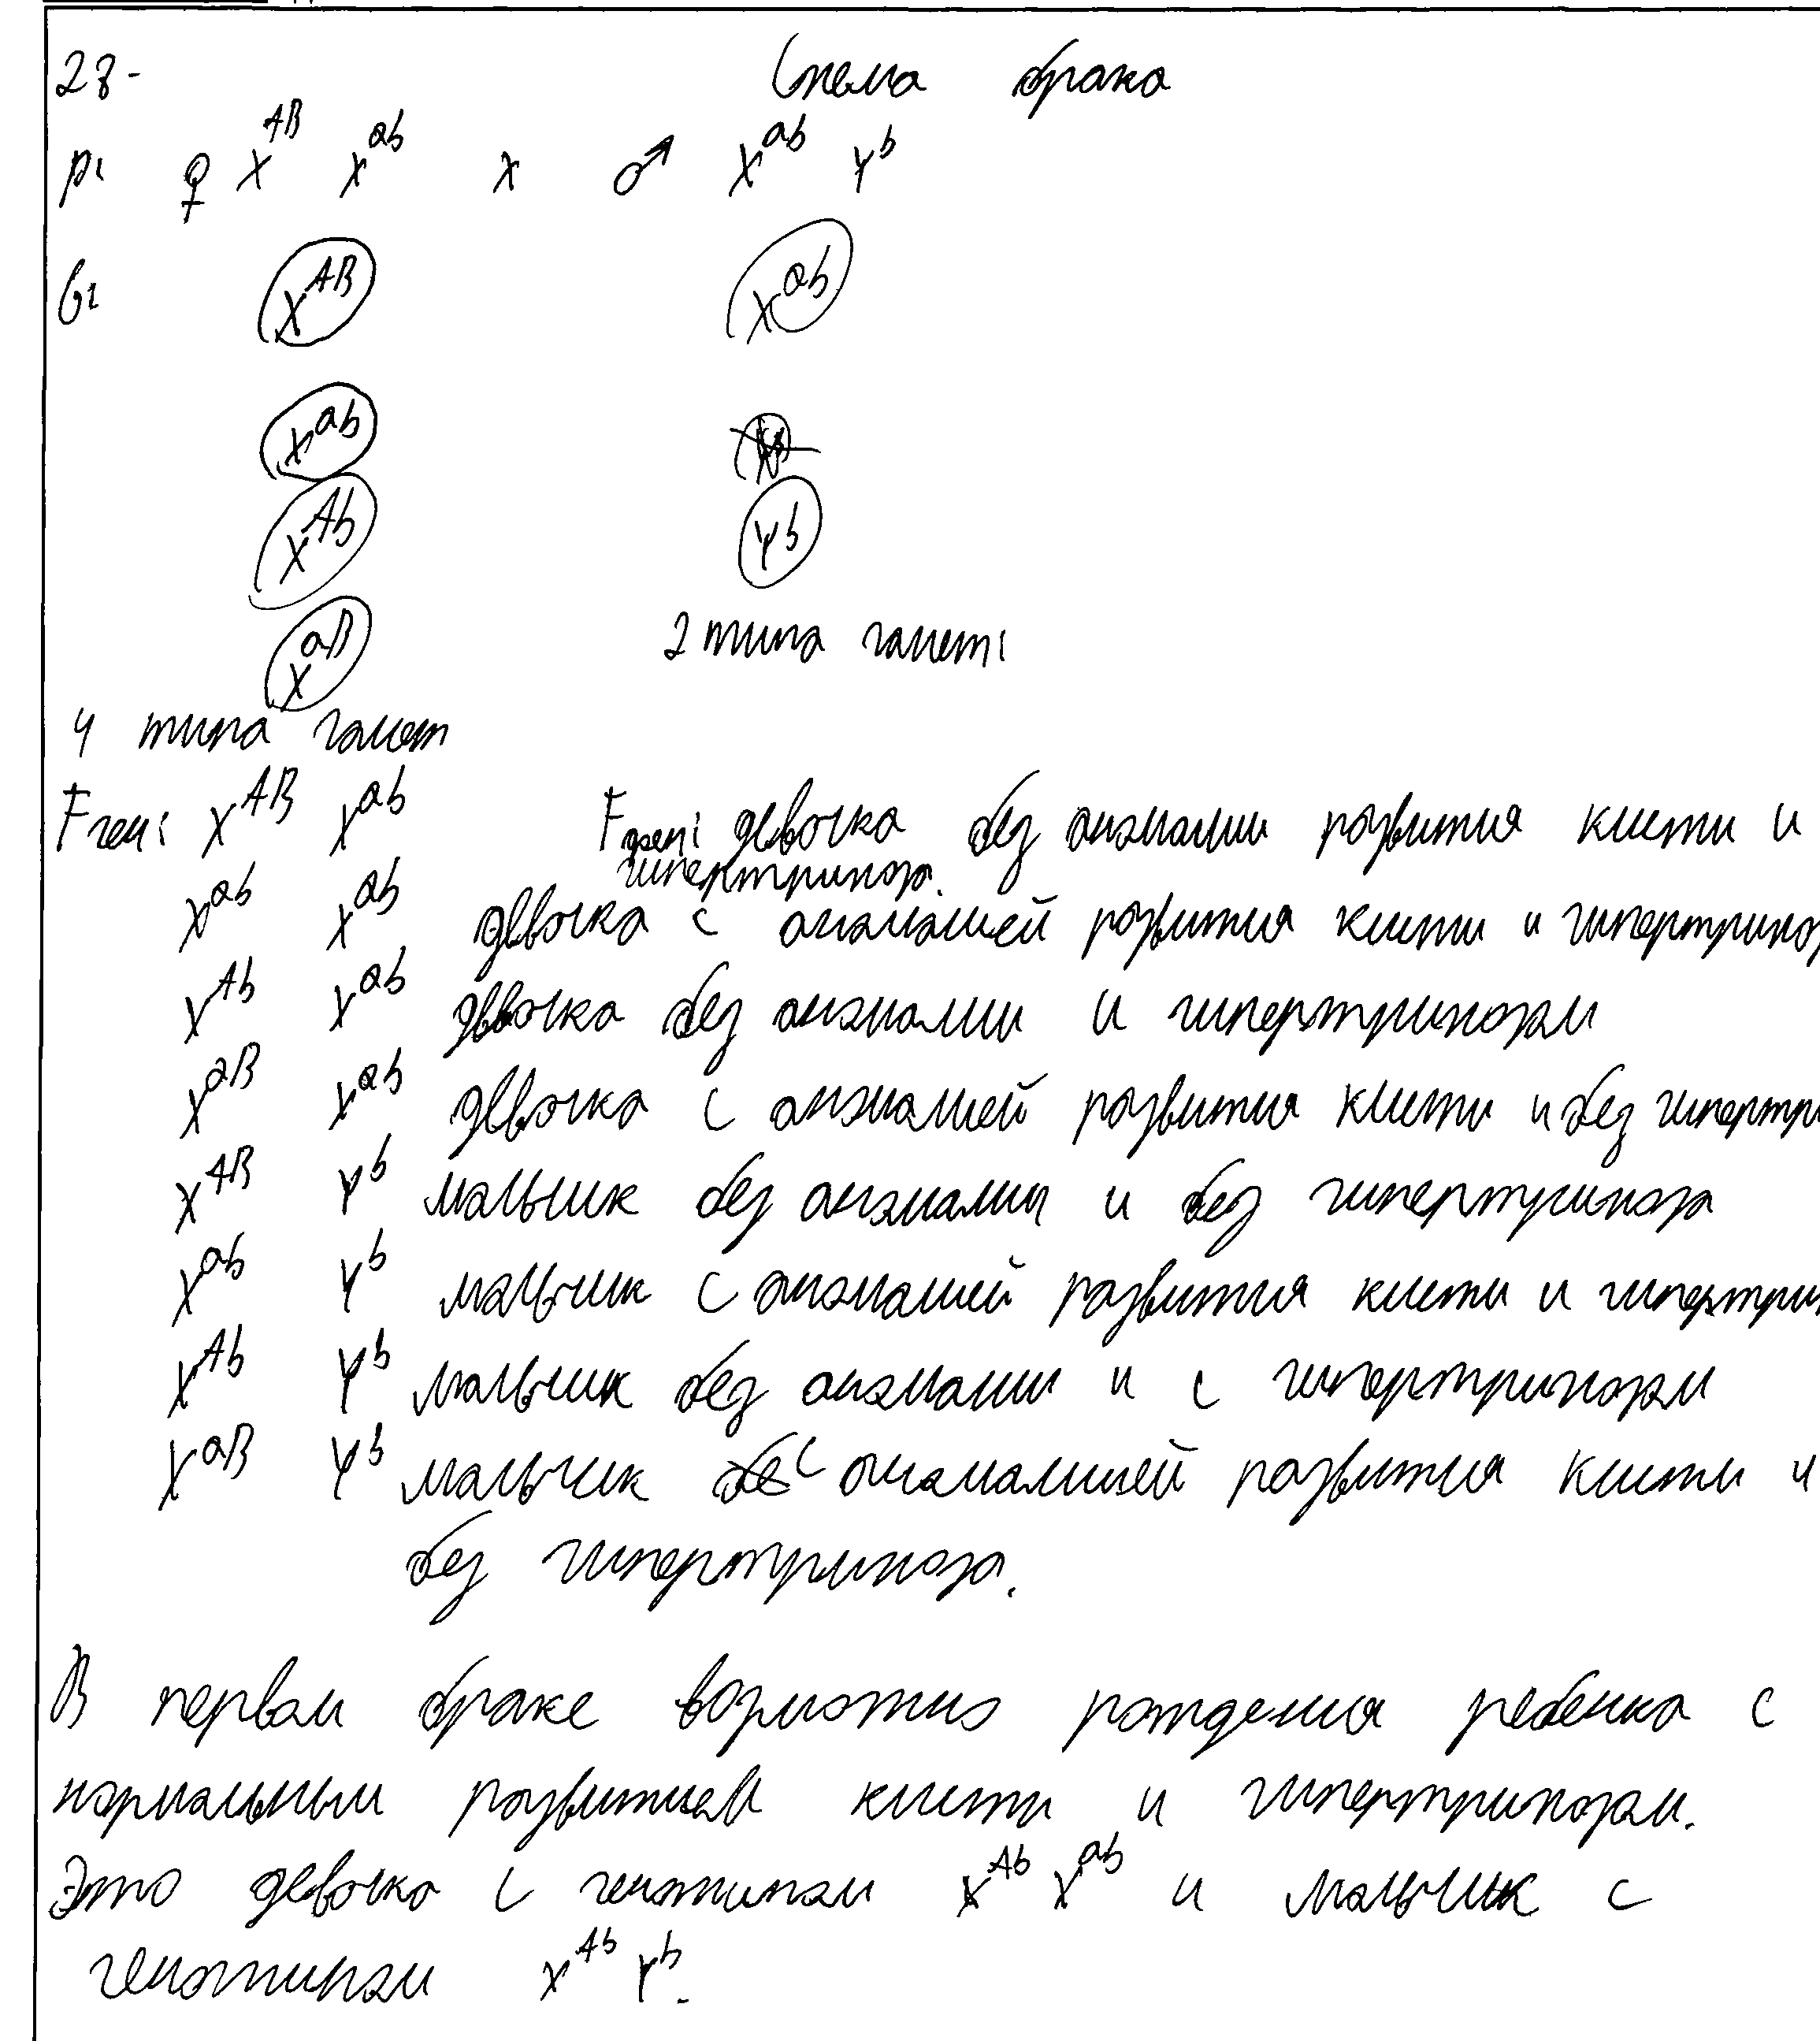 28. Схема брака
P: ♀ X^AB X^ab x ♂ X^ab Y^b
G: X^AB X^ab
X^ab
X^Ab Y^b
X^aB 2 типа гамет:
4 типа гамет
F ген: X^AB X^ab F фен: девочка без аномалии развития кисти и
гипертрихоза.
X^ab X^ab девочка с аномалией развития кисти и гипертрихоз
X^Ab X^ab девочка без аномалии и гипертрихозом
X^aB X^ab девочка с аномалией развития кисти и без гипертри
X^AB Y^b мальчик без аномалии и без гипертрихоза
X^ab Y^b мальчик с аномалией развития кисти и гипертрих
X^Ab Y^b мальчик без аномалии и с гипертрихозом
X^aB Y^b мальчик с аномалией развития кисти и
без гипертрихоза.
В первом браке рождения ребенка с
нормальным развитием кисти и гипертрихозом.
Это девочка с генотипом X^Ab X^ab и мальчик с
генотипом X^Ab Y^b.